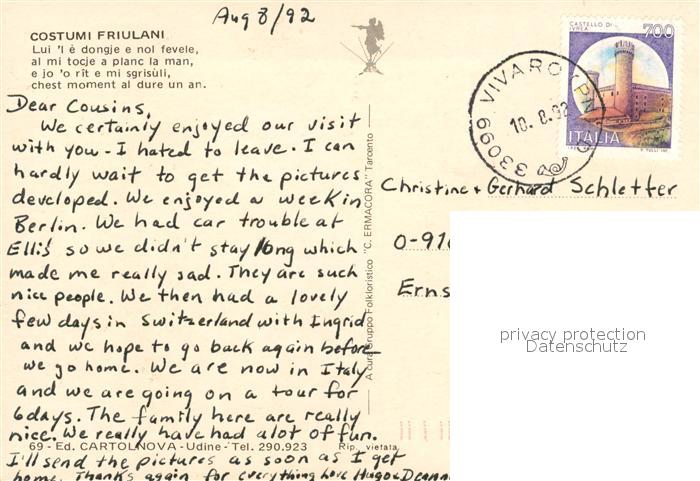 Aug 8/92
COSTUMI FRIULANI
Lui 'l è dongje e nol fevele,
al mi tocje a planc la man,
e jo 'o rît e mi sgrisùli,
chest moment al dure un an.
Dear Cousins,
We certainly enjoyed our visit
with you - I hated to leave. I can
hardly wait to get the pictures
developed. We enjoyed a week in
Berlin. We had car trouble at
Elli's so we didn't stay long which
made me really sad. They are such
nice people. We then had a lovely
few days in Switzerland with Ingrid
and we hope to go back again before
we go home. We are now in Italy
and we are going on a tour for
6 days. The family here are really
nice. We really have had a lot of fun.
69 - Ed. CARTOLNOVA - Udine - Tel. 290.923 Rip. vietata
I'll send the pictures as soon as I get
home. Thanks again for everything love Hugo & Deanna
A cura Gruppo Folkloristico "C. ERMACORA" Tarcento
CASTELLO DI
IVREA
700
ITALIA
33099 VIVARO (PN)
10.8.92
Christine + Gerhard Schletter
O-910
Erns
privacy protection
Datenschutz